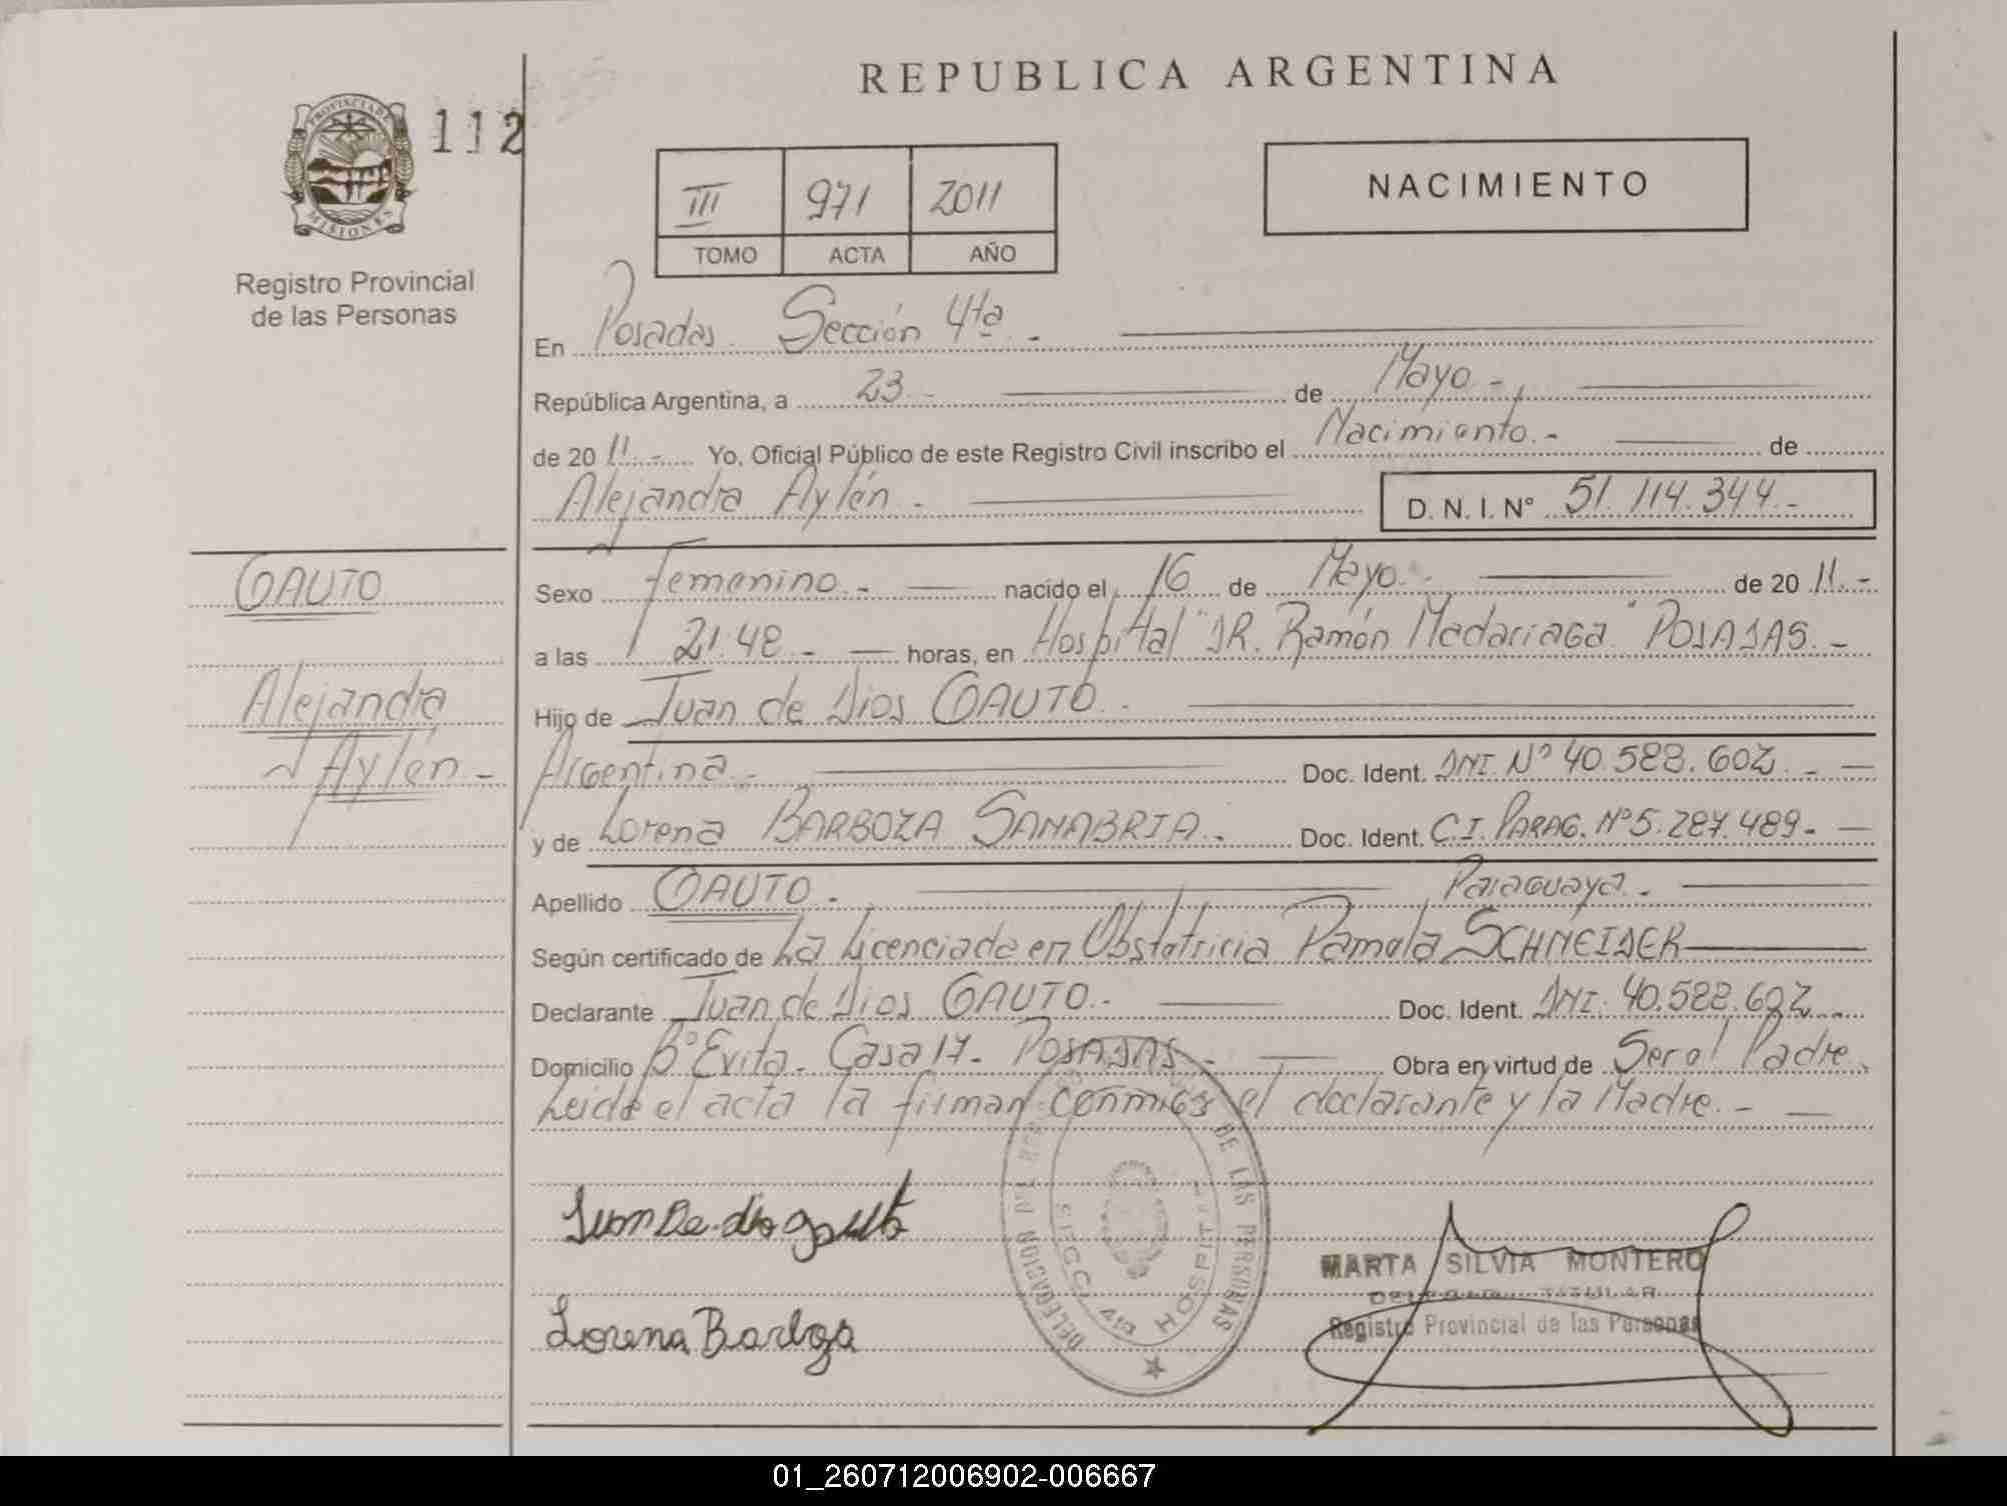 REPUBLICA ARGENTINA
PROVINCIA DE
MISIONES
112
III 971 2011
TOMO ACTA AÑO
NACIMIENTO
Registro Provincial
de las Personas
En Posadas Sección 4ta.-
República Argentina, a 23.- de Mayo.-
de 2011.- Yo, Oficial Público de este Registro Civil inscribo el Nacimiento.- de
Alejandra Aylén.- D. N. I. Nº 51.114.344.-
GAUTO
Alejandra
Aylén.-
Sexo femenino.- nacido el 16 de Mayo.- de 2011.-
a las 21.48.- horas, en Hospital "DR. Ramón Madariaga" POSADAS.-
Hijo de Juan de Dios GAUTO.-
Argentina.- Doc. Ident. DNI. Nº 40.588.602.-
y de Lorena BARBOZA SANABRIA.- Doc. Ident. C.I. PARAG. Nº 5.287.489.-
Apellido GAUTO.- Paraguaya.-
Según certificado de La Licenciada en Obstetricia Pamela SCHNEIDER
Declarante Juan de Dios GAUTO.- Doc. Ident. DNI. 40.588.602.-
Domicilio Bº Evita- Casa 17- POSADAS.- Obra en virtud de Ser el Padre.
Leida el acta la firman conmigo el declarante y la Madre.-
Juan De dios gauto
Lorena Barboza
DELEGACION DEL DE LAS PERSONAS
HOSPITAL
MARTA SILVIA MONTERO
DELEGADA TITULAR
Registro Provincial de las Personas
01_260712006902-006667